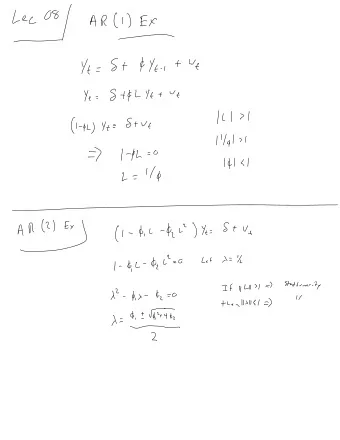 Lec 08
AR(1) Ex
Yt = δ + ϕ Yt-1 + vt
Yt = δ + ϕL Yt + vt
(1-ϕL) Yt = δ + vt
|L| > 1
⇒ 1-ϕL = 0
|1/ϕ| > 1
L = 1/ϕ
|ϕ| < 1
AR(2) Ex
(1 - ϕ1L - ϕ2L²) Yt = δ + vt
1 - ϕ1L - ϕ2L² = 0 Let λ = 1/L
λ² - ϕ1λ - ϕ2 = 0
If |L| > 1 ⇒ Stationarity
λ = ϕ1 ± √ϕ1²+4ϕ2
then |λ| < 1 ⇒ "
2